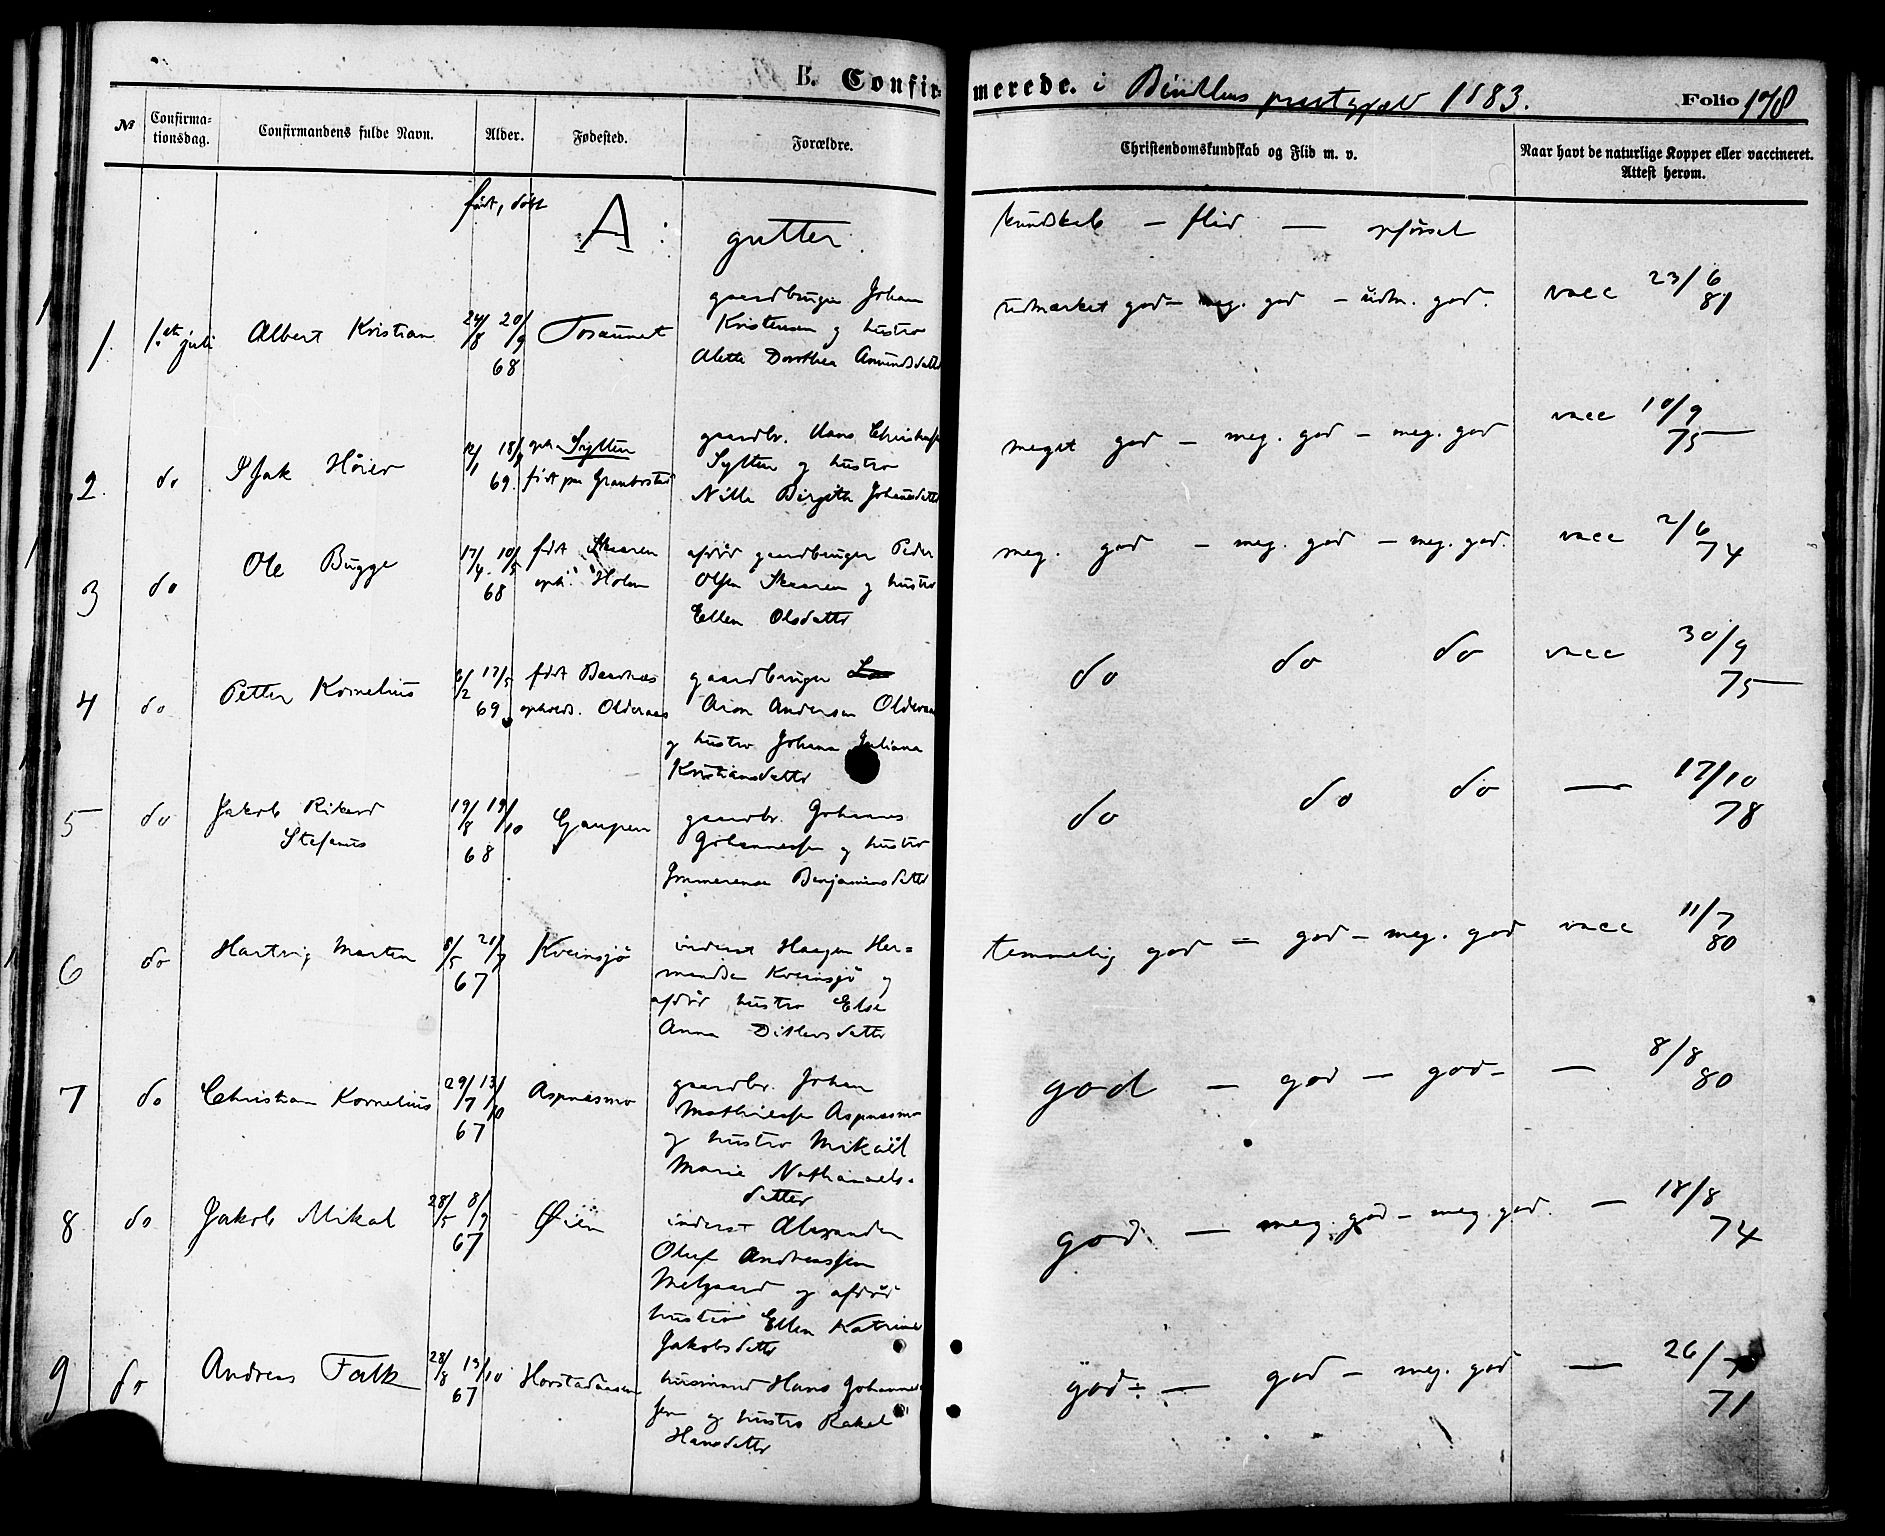 B. Confirmerede. i Bindalens prestegjeld 1883. Folio 178
№ Confirmationsdag. Confirmandens fulde Navn. Alder. Fødested. Forældre. Christendomskundskab og Flid m. v. Naar havt de naturlige Kopper eller vaccineret. Attest herom.
født, døbt A: gutter. kundskab — flid — opførsel
1. 1ste juli Albert Kristian 24/8 20/9 68 Tosaunet
gaardbruger Johan
Kristensen og hustru
Alette Dorothea Amundsdatter
udmærket god — meg. god — udm. god. vacc 23/6 81
2. do Isak Höier 12/1 18/ 69. oph. Sytten
født paa
gaardbr. Hans
Sytten og hustru
Nille Birgitte Johannsdatter
meget god — meg. god — meg. god vacc 10/9 75
3 do Ole Bugge 17/4 10/5 68 født Skaaren
oph. Holm
afdød gaardbruger Peder
Olsen Skaaren og hustru
Ellen Olsdatter
meg. god — meg. god — meg. god. vacc 2/6 74
4 do Petter Kornelius 6/2 17/5 69 født
opholds. Oldernæs
gaardbruger
Aron Andersen
og hustru Johana Juliana
Kristiansdatter
do do do vacc 30/9 75
5 do Jakob Rikard
Stefanus
19/8 19/10 68 Gaupen
gaardbr. Johannes
Johannessen og hustru
Immerense Benjaminsdatter
do do do — 17/10 78
6 do Hartvig Martin 8/5 21/7 67 Kveinsjö
inderst Haagen Her=
mandsen Kveinsjö og
afdød hustru Else
Anna Ditlevsdatter
temmelig god — god — meg. god vacc 11/7 80
7 do Christian Kornelius 29/7 13/10 67 Aspnæsmo
gaardbr. Johan
Mathiessen Aspnæsmo
og hustru Mikaël
Marie Nathanaels-
datter
god — god — god — — 8/8 80
8 do Jakob Mikal 28/5 8/9 67 Øien
inderst Alexander
Oluf Andreassen
Melgaard og afdød
hustru Ellen Katrine
Jakobsdatter
god. — meg. god — meg. god. — 18/8 74
9 do Andreas Falk 28/8 13/10 67 Horstadaasen
husmand Hans Johannes
sen og hustru Rakel
Hansdatter
god ÷ — god — meg. god — 26/7 71